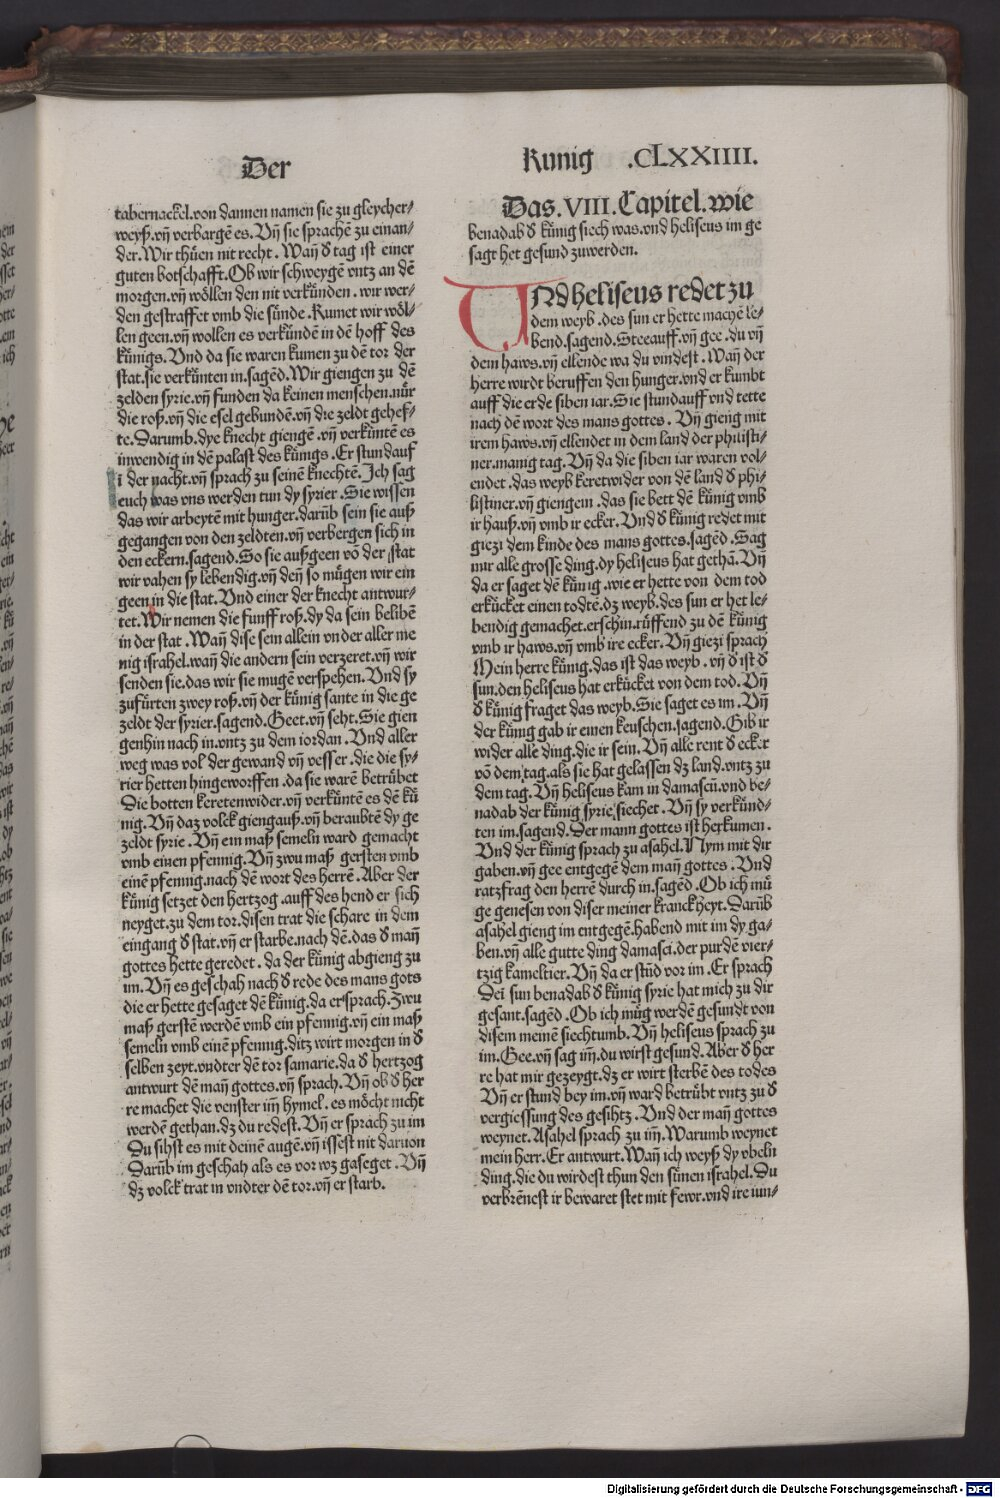 Der
Kunig .CLXXIIII.
tabernackel.von dannen namen sie zu gleycher⸗
weyß.vñ verbargẽ es. Vñ sie sprachẽ zu einan⸗
der.Wir thuͤen nit recht. Wañ ď tag ist einer
guten botschafft.Ob wir schweygẽ vntz an dẽ
morgen.vñ woͤllen den nit verkuͤnden.wir wer⸗
den gestraffet vmb die suͤnde.Kumet wir woͤl⸗
len geen.vñ wollen es verkuͤndẽ in dẽ hoff des
kuͤnigs. Vnd da sie waren kumen zu dẽ tor der
stat.sie verkuͤnten in.sagẽd.Wir giengen zu dẽ
zelden syrie.vñ funden da keinen menschen.nuͤr
die roß.vñ die esel gebundẽ.vñ die zeldt gehef⸗
te.Darumb.dye knecht giengẽ.vñ verkuͤntẽ es
inwendig in dẽ palast des kuͤnigs. Er stund auf
ĩ der nacht.vñ sprach zu seinẽ knechtẽ.Ich sag
euch was vns werden tun dy syrier.Sie wissen
das wir arbeytẽ mit hunger.darũb sein sie auß
gegangen von den zeldten.vñ verbergen sich in
den eckern.sagend.So sie außgeen võ der stat
wir vahen sy lebendig.vñ deñ so muͤgen wir ein
geen in die stat. Vnd einer der knecht antwur⸗
tet.Wir nemen die funff roß.dy da sein belibẽ
in der stat. Wañ dise sein allein vnder aller me
nig israhel.wañ die andern sein verzeret.vñ wir
senden sie.das wir sie mugẽ verspehen. Vnd sy
zufuͤrten zwey roß.vñ der kuͤnig sante in die ge
zeldt der syrier.sagend.Geet.vñ seht.Sie gien
genhin nach in.vntz zu dem iordan. Vnd aller
weg was vol der gewand vñ vesser.die die sy⸗
rier hetten hingeworffen.da sie warẽ betruͤbet
Die botten keretenwider.vñ verkuͤntẽ es dẽ kuͤ
nig. Vñ daz volck giengauß.vñ beraubtẽ dy ge
zeldt syrie. Vñ ein maß semeln ward gemacht
vmb einen pfennig. Vñ zwu maß gersten vmb
einẽ pfennig.nach dẽ wort des herrẽ. Aber der
kuͤnig setzet den hertzog.auff des hend er sich
neyget.zu dem tor.disen trat die schare in dem
eingang ď stat.vñ er starbe.nach dẽ.das ď mañ
gottes hette geredet.da der kuͤnig abgieng zu
im. Vñ es geschah nach ď rede des mans gots
die er hette gesaget dẽ kuͤnig.da er sprach.Zwu
maß gerstẽ werdẽ vmb ein pfennig.vñ ein maß
semeln vmb einẽ pfennig.ditz wirt morgen in ď
selben zeyt.vndter dẽ tor samarie.da ď hertzog
antwurt dẽ mañ gottes.vñ sprach. Vñ ob ď her
re machet die venster im̃ hymel.es moͤcht nicht
werdẽ gethan.dz du redest. Vñ er sprach zu im
Du sihst es mit deinẽ augẽ.vñ issest nit daruon
Darũb im geschah als es vor wz gaseget. Vñ
dz volck trat in vndter dẽ tor.vñ er starb.
Das.VIII.Capitel.wie
benadab ď kuͤnig siech was.vnd heliseus im ge
sagt het gesund zuwerden.
VNd heliseus redet zu
dem weyb.des sun er hette machẽ le⸗
bend.sagend.Steeauff.vñ gee.du vñ
dem haws.vñ ellende wa du vindest. Wañ der
herre wirdt beruffen den hunger.vnd er kumbt
auff die erde siben iar.Sie stundauff vnd tette
nach dẽ wort des mans gottes. Vñ gieng mit
irem haws.vñ ellendet in dem land der philisti⸗
ner.manig tag. Vñ da die siben iar waren vol⸗
endet.das weyb keretwider von dẽ land ď phi⸗
listiner.vñ giengein.das sie bett dẽ kuͤnig vmb
ir hauß.vñ vmb ir ecker. Vnd ď kuͤnig redet mit
giezi dem kinde des mans gottes.sagẽd.Sag
mir alle grosse ding.dy heliseus hat gethã. Vñ
da er saget dẽ kuͤnig.wie er hette von dem tod
erkuͤcket einen todtẽ.dz weyb.des sun er het le⸗
bendig gemachet.erschin.ruͤffend zu dẽ kuͤnig
vmb ir haws.vñ vmb ire ecker. Vñ giezi sprach
Mein herre kuͤnig.das ist das weyb.vñ ď ist ď
sun.den heliseus hat erkuͤcket von dem tod. Vñ
ď kuͤnig fraget das weyb.Sie saget es im. Vñ
der kuͤnig gab ir einen keuschen.sagend.Gib ir
wider alle ding.die ir sein. Vñ alle rent ď ecker
võ dem tag.als sie hat gelassen dz land.vntz zu
dem tag. Vñ heliseus kam in damascũ.vnd be⸗
nadab der kuͤnig syrie siechet. Vñ sy verkuͤnd⸗
ten im.sagend.Der mann gottes ist herkumen.
Vnd der kuͤnig sprach zu asahel.Nym mit dir
gaben.vñ gee entgegẽ dem mañ gottes. Vnd
ratzfrag den herrẽ durch in.sagẽd.Ob ich muͤ
ge genesen von diser meiner kranckheyt.Darũb
asahel gieng im entgegẽ.habend mit im dy ga⸗
ben.vñ alle gutte ding damasci.der purdẽ vier⸗
tzig kameltier. Vñ da er stũd vor im.Er sprach
Deĩ sun benadab ď kuͤnig syrie hat mich zu dir
gesant.sagẽd.Ob ich muͤg werdẽ gesundt von
disem meinẽ siechtumb. Vñ heliseus sprach zu
im.Gee.vñ sag im̃.du wirst gesund.Aber ď her
re hat mir gezeygt.dz er wirt sterbẽ des todes
Vñ er stund bey im.vñ ward betruͤbt vntz zu ď
vergiessung des gesihtz. Vnd der mañ gottes
weynet.Asahel sprach zu im̃.Warumb weynet
mein herr.Er antwurt.Wañ ich weyß dy vbeln
ding.die du wirdest thun den suͤnen israhel.Du
verbrẽnest ir bewaret stet mit fewr.vnd ire iun⸗
Digitalisierung gefördert durch die Deutsche Forschungsgemeinschaft - DFG